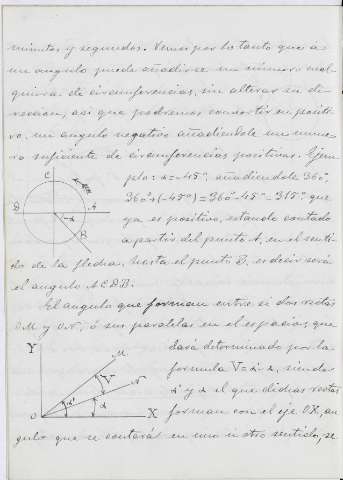 minutos y segundos. Vemos por lo tanto que a
un angulo puede añadirse un número cual-
quiera de circunferencias, sin alterar su di-
reccion, asi que podremos convertir en positi-
vo, un angulo negativo añadiendole un nume-
ro suficiente de circunferencias positivas. Ejem-
plo: α = -45°, añadiendole 360°,
360° + (-45°) = 360° - 45° = 315° que
ya es positivo, estando contado
a partir del punto A, en el senti-
do de la flecha, hasta el punto B, es decir será
el angulo A C D B.
El angulo que forman entre si dos rectas
O M y O N, ó sus paralelas en el espacio, que
dará determinado por la
formula V = α' - α, siendo
α' y α el que dichas rectas
forman con el eje OX, an
gulo que se contará en uno ú otro sentido, se
C
D
A
-α
B
Y
M
N
V
α'
α
O
X